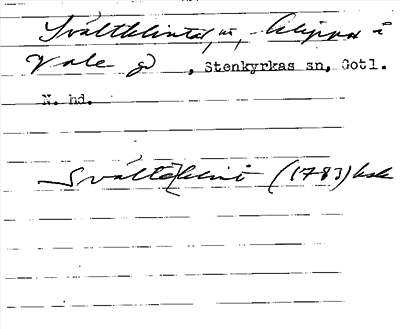 Svältklintar, m, klippa å
Vale gd , Stenkyrkas sn, Gotl.
N. hd.
Svälteklint (1783)